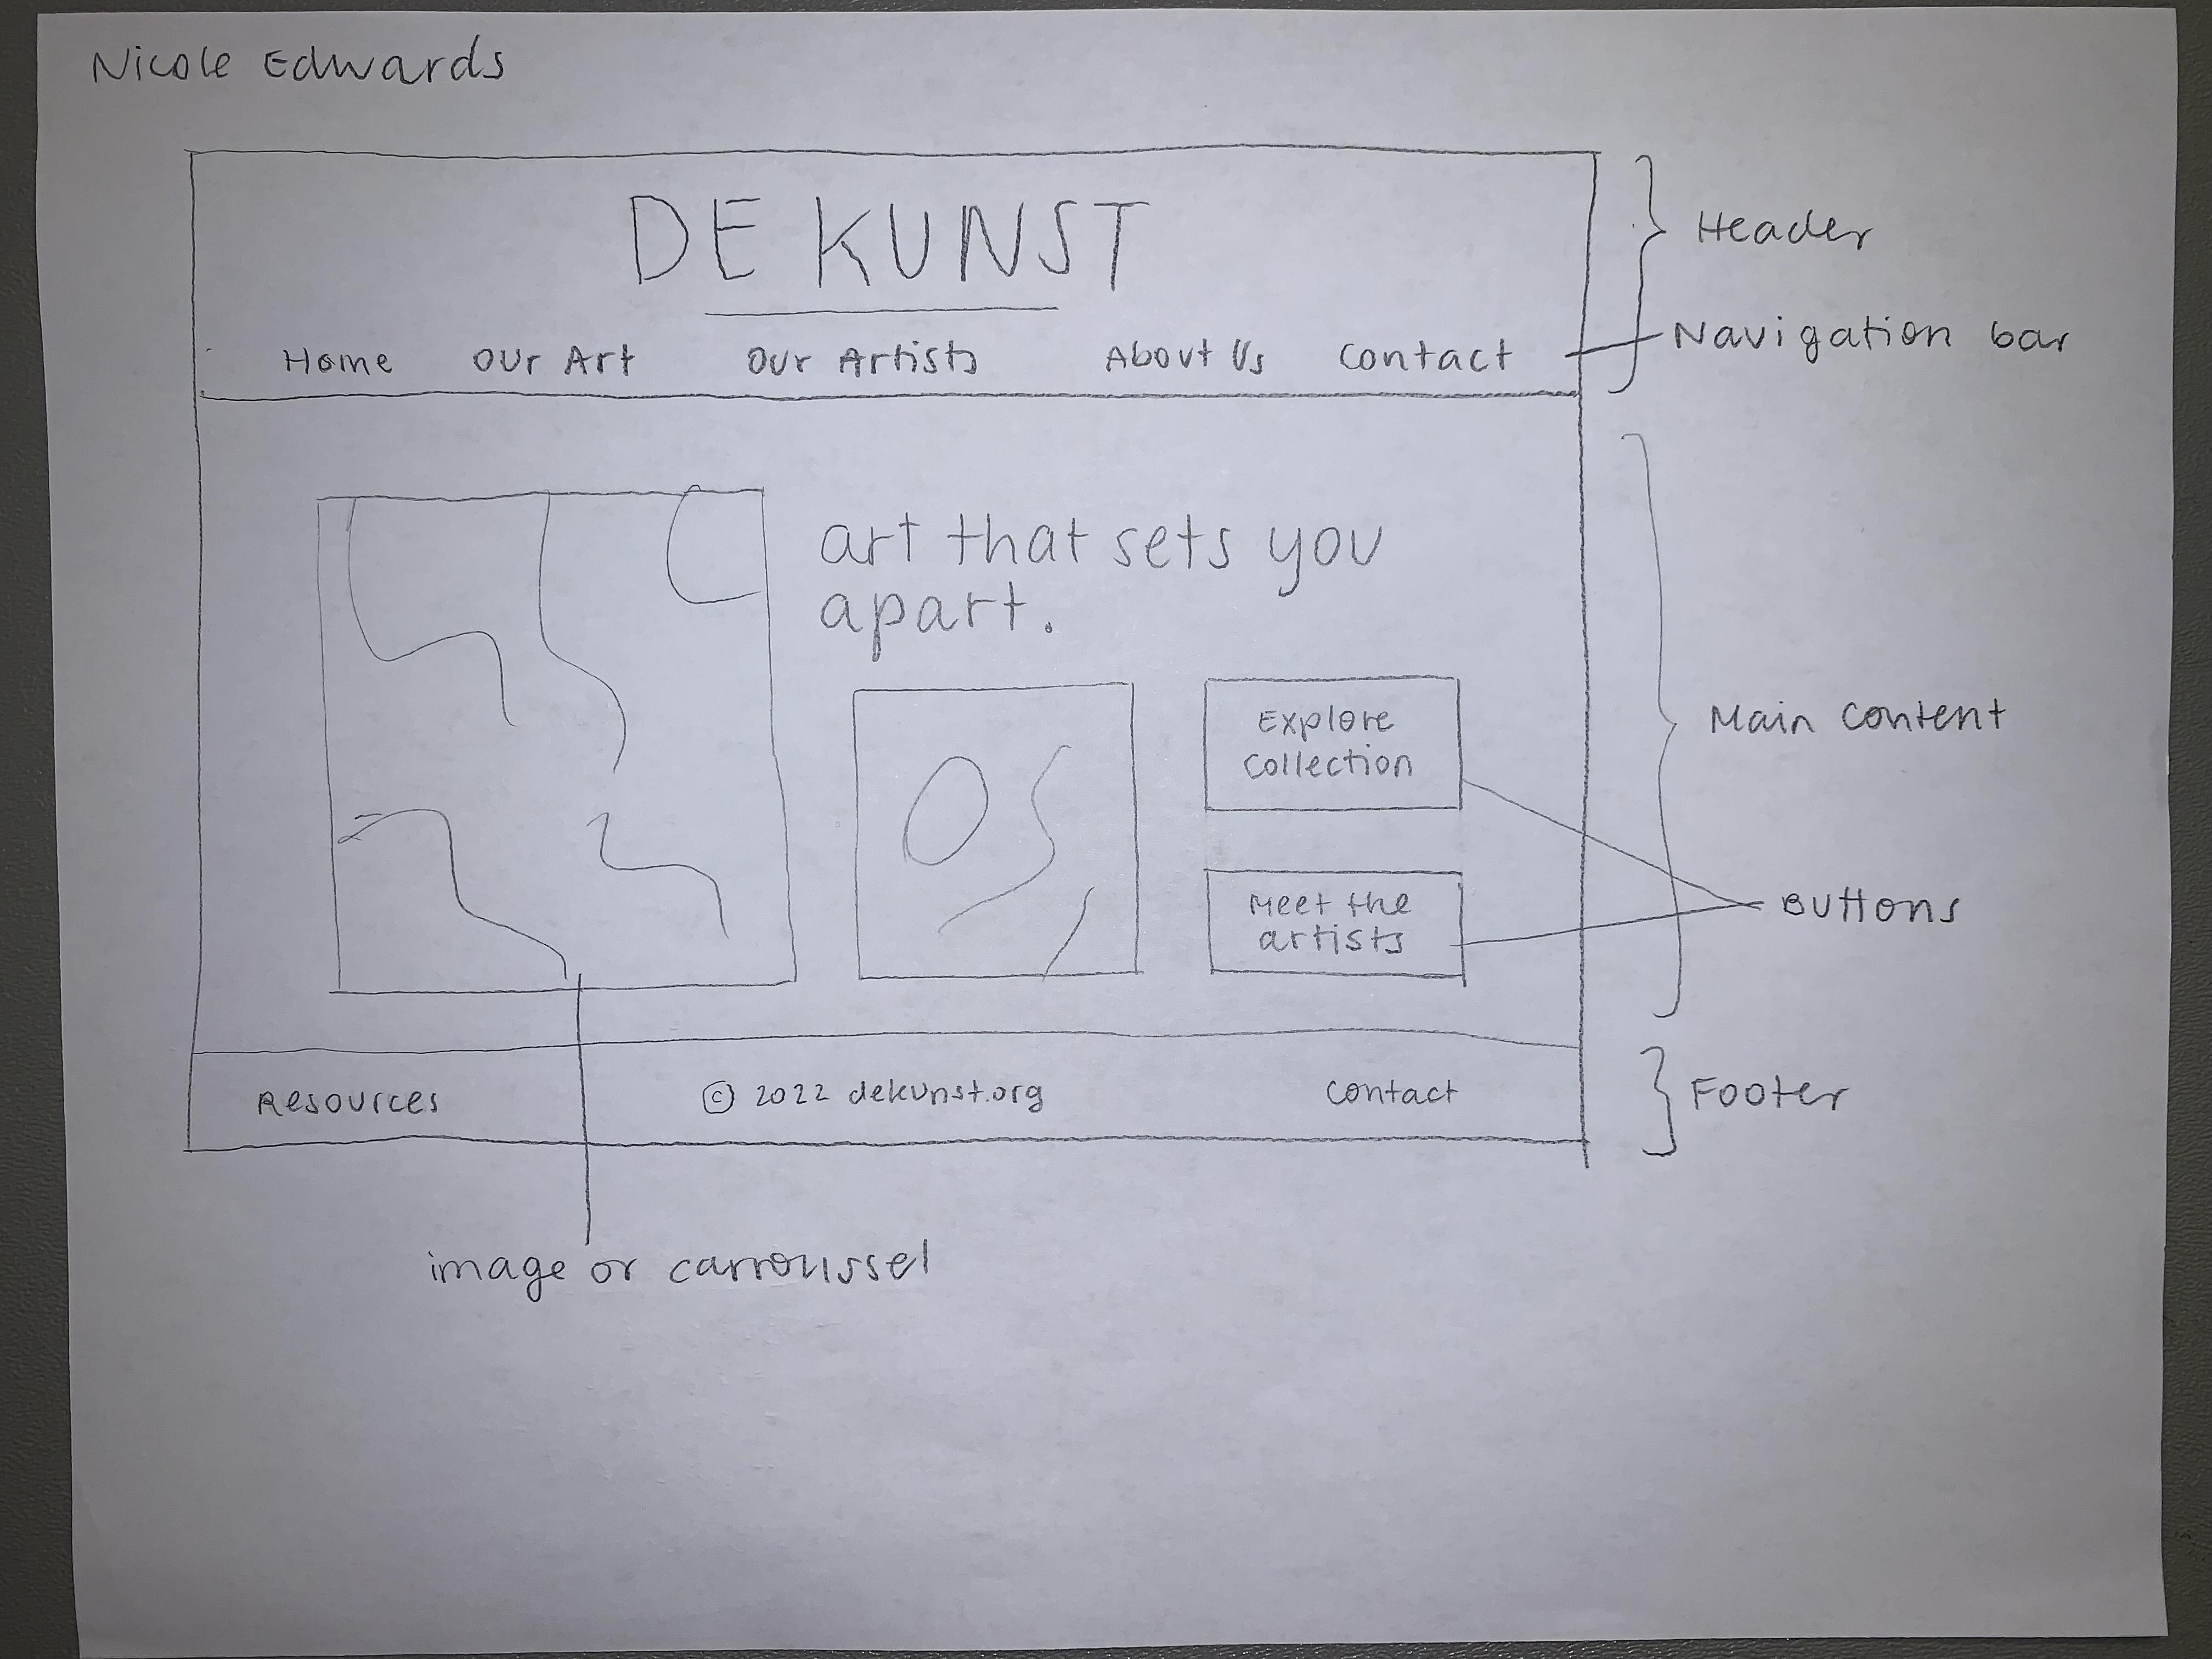 Nicole Edwards
DE KUNST
Header
Home Our Art Our Artists About Us Contact
Navigation bar
art that sets you
apart.
Explore
collection
Main content
Meet the
artists
Buttons
Resources © 2022 dekunst.org contact
Footer
image or carroussel